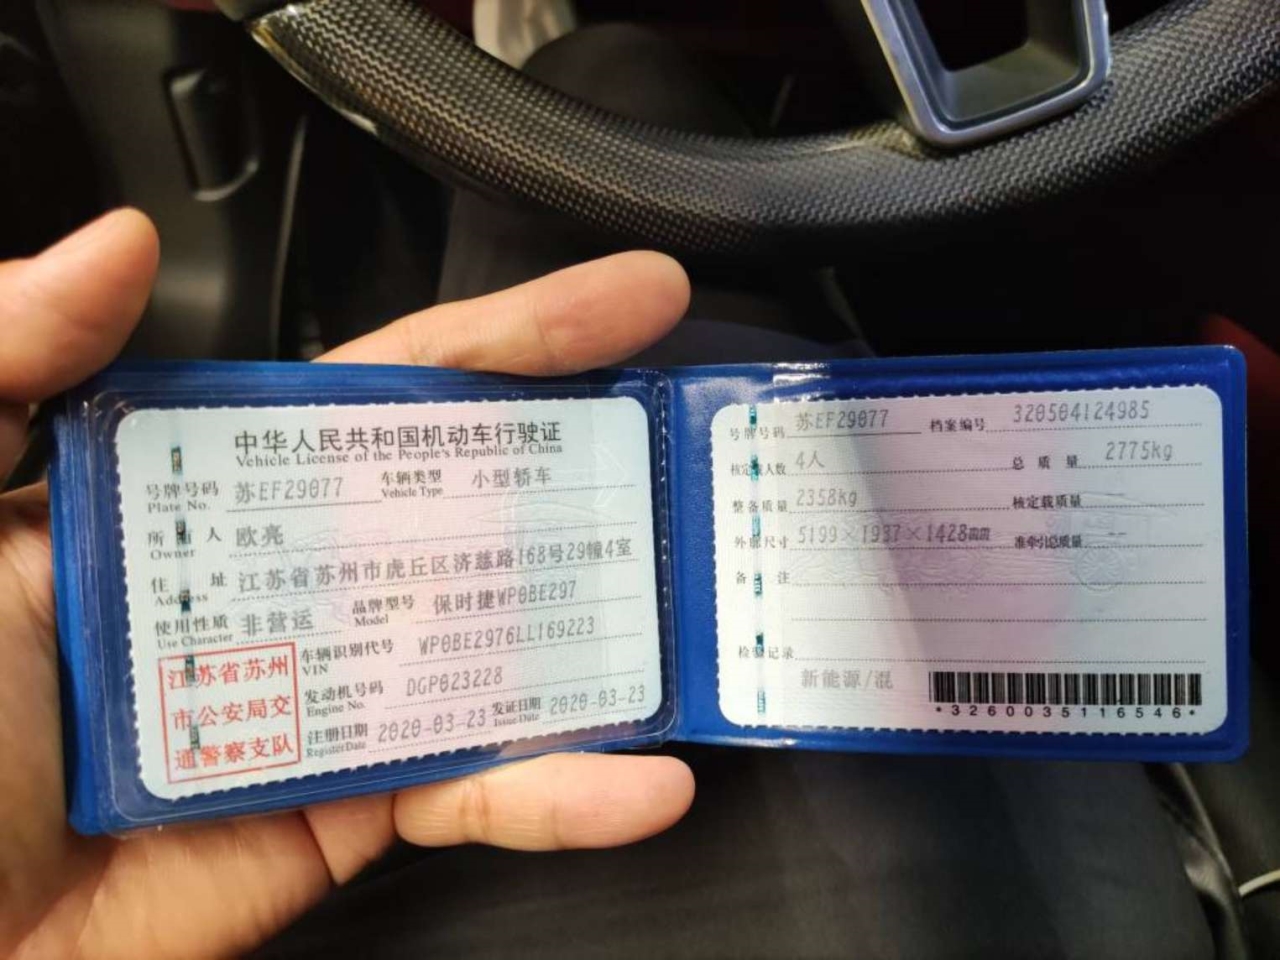 中华人民共和国机动车行驶证
Vehicle License of the People's Republic of China
号牌号码 苏EF29077 车辆类型 小型轿车
Plate No. Vehicle Type
所有人 欧亮
Owner
住址 江苏省苏州市虎丘区济慈路168号29幢4室
Address
使用性质 非营运 品牌型号 保时捷WP0BE297
Use Character Model
车辆识别代号 WP0BE2976LL169223
VIN
发动机号码 DGP023228
Engine No.
注册日期 2020-03-23 发证日期 2020-03-23
Register Date Issue Date
江苏省苏州
市公安局交
通警察支队
号牌号码 苏EF29077 档案编号 320504124985
核定载人数 4人 总质量 2775kg
整备质量 2358kg 核定载质量 --
外廓尺寸 5199×1937×1428mm 准牵引总质量 --
备注
检验记录
新能源/混
*3260035116546*